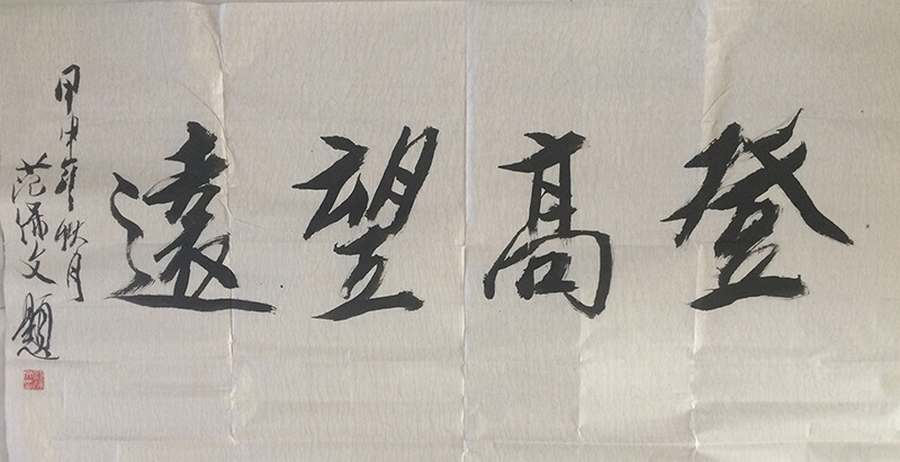 登高望遠
甲申年秋月
范文題